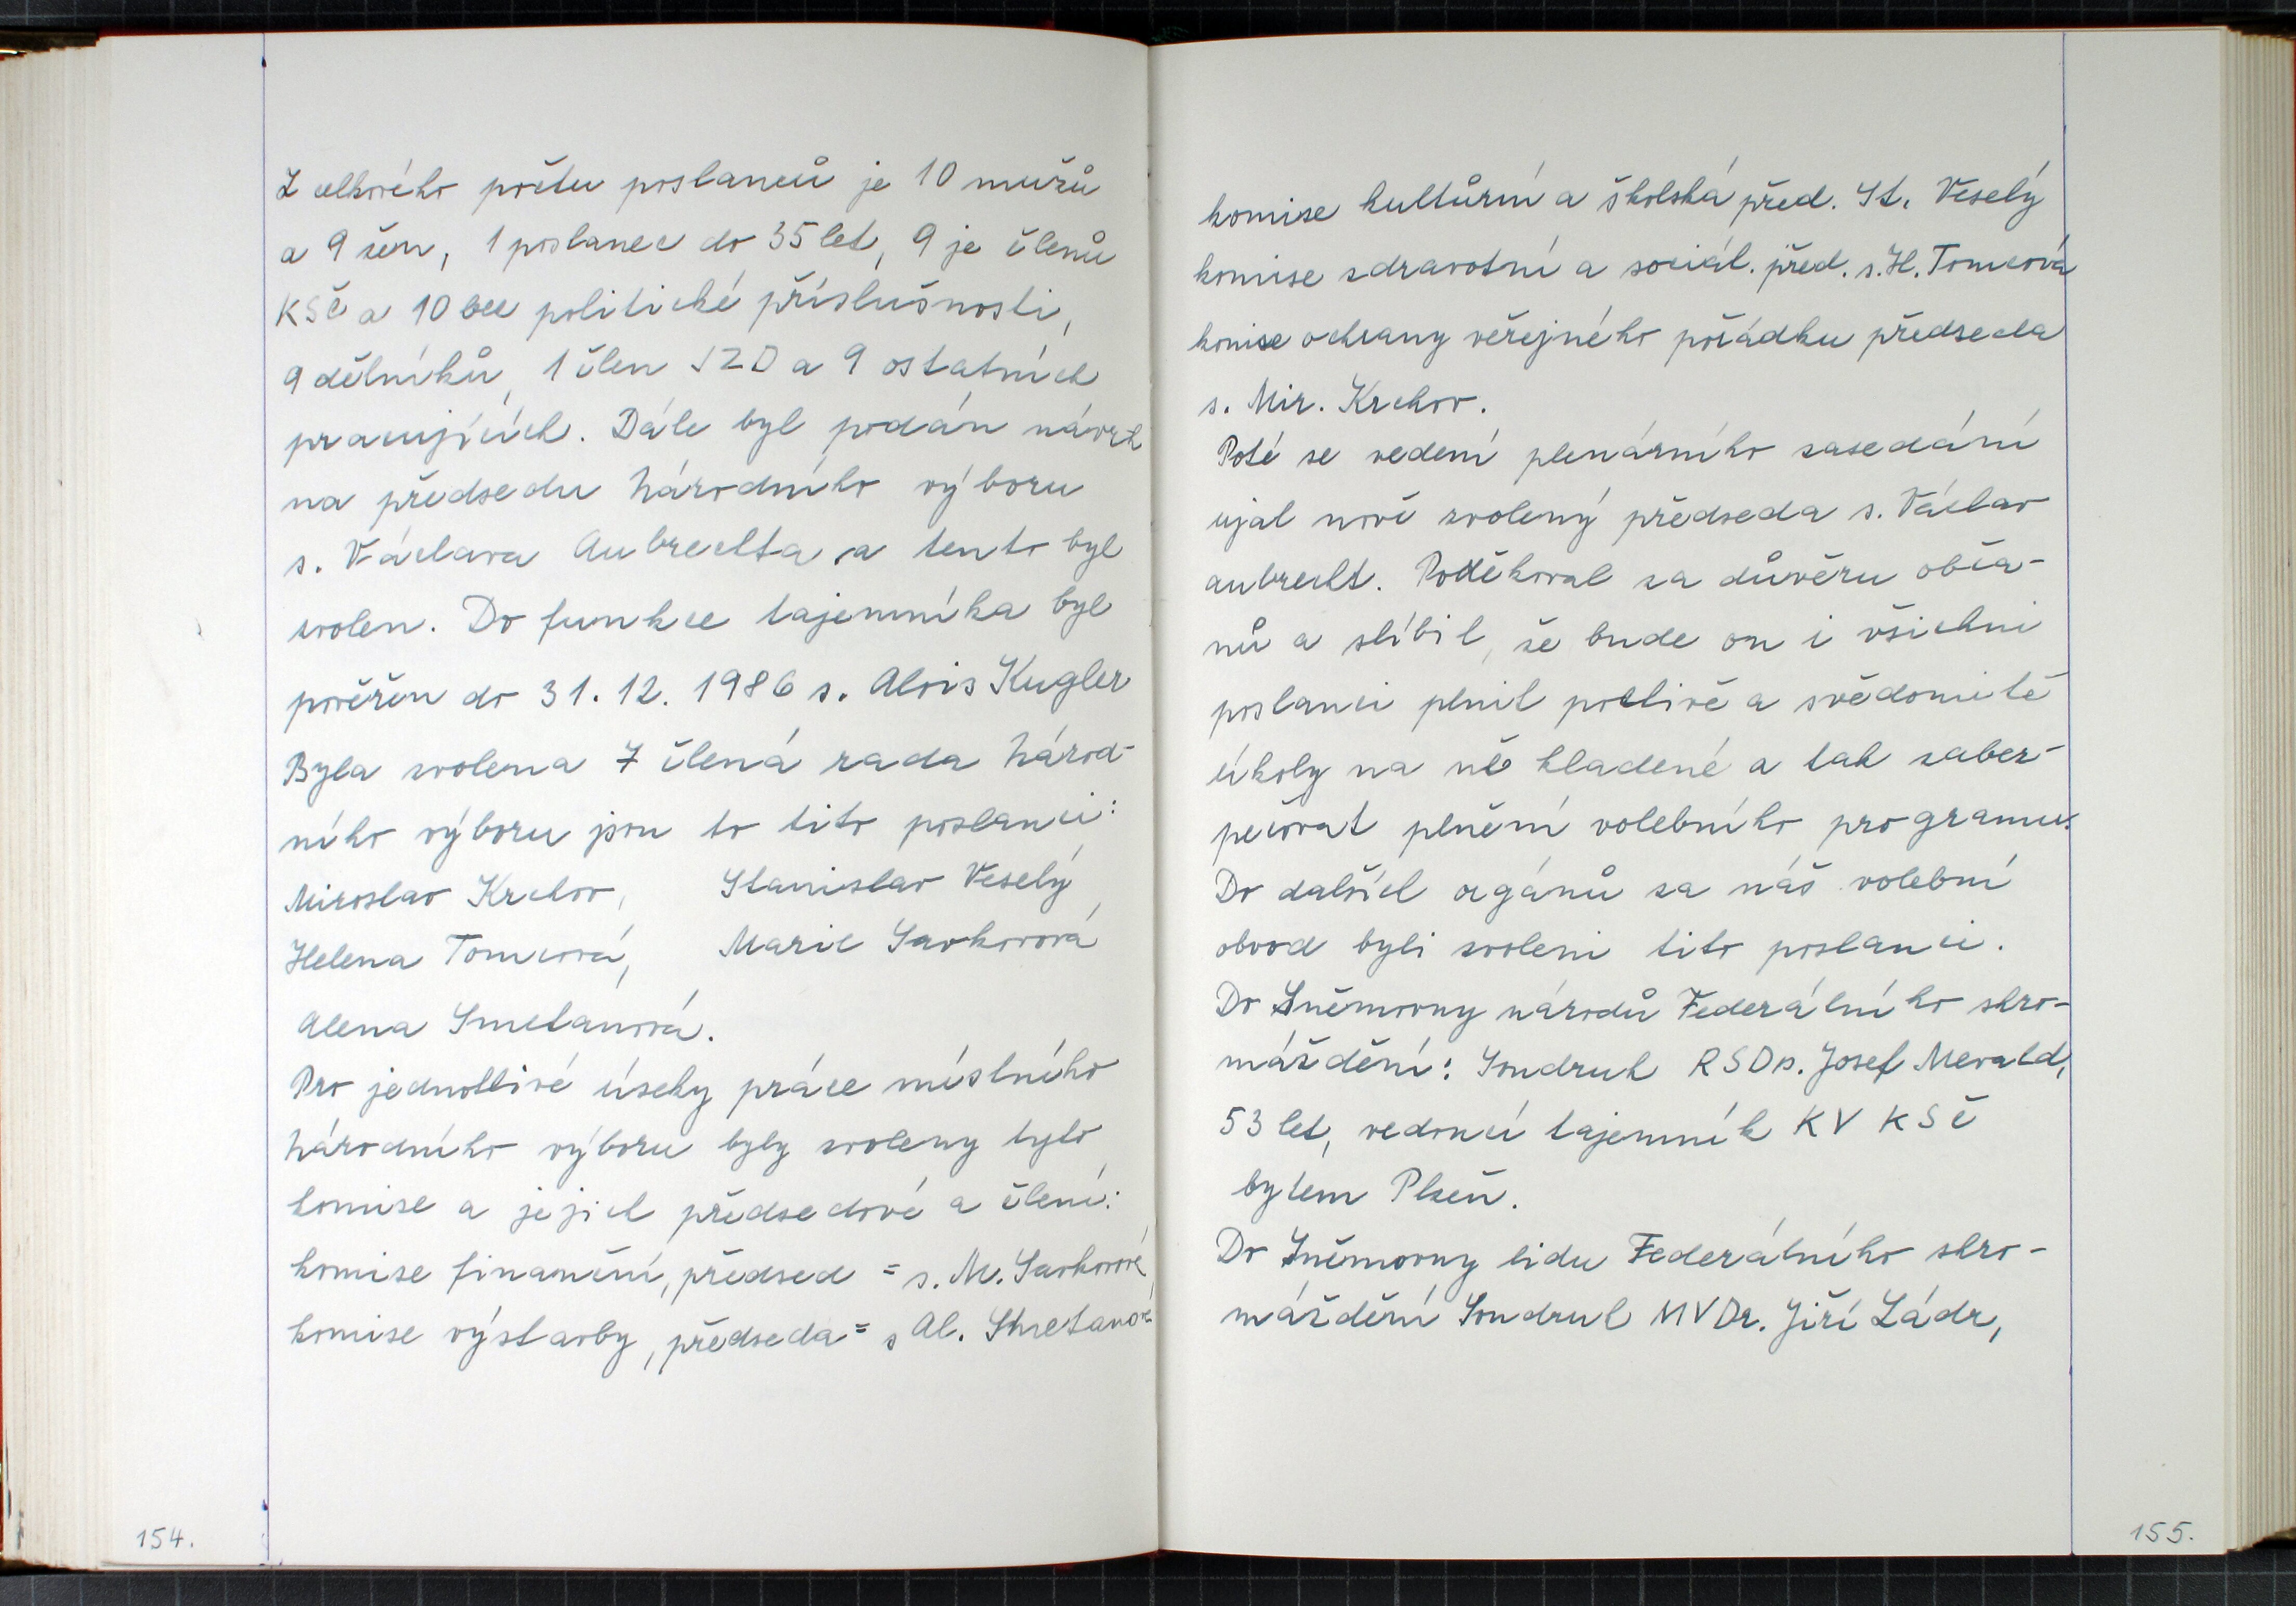 Z celkového počtu poslanců je 10 mužů
a 9 žen, 1 poslanec do 35 let, 9 je členů
KSČ a 10 bez politické příslušnosti,
9 dělníků, 1 člen JZD a 9 ostatních
pracujících. Dále byl podán návrh
na předsedu Národního výboru
s. Václava Aubrechta, a tento byl
zvolen. Do funkce tajemníka byl
pověřen do 31. 12. 1986 s. Alois Kugler
Byla zvolena 7 člená rada Národ-
ního výboru jsou to tito poslanci:
Miroslav Krchov, Stanislav Veselý,
Helena Tomcová, Marie Savkorová
Alena Smetanová.
Pro jednotlivé úseky práce místního
Národního výboru byly zvoleny tyto
komise a jejich předsedové a členi:
komise finanční, předsed = s. M. Savkorová,
komise výstavby, předseda = s Al. Smetanov
komise kultůrní a školská před. St. Veselý
komise zdravotní a sociál. před. s. H. Tomcová
komise ochrany veřejného pořádku předseda
s. Mir. Krchov.
Poté se vedení plenárního zasedání
ujal nově zvolený předseda s. Václav
Aubrecht. Poděkoval za důvěru obča-
nů a slíbil, že bude on i všichni
poslanci plnit poctivě a svědomitě
úkoly na ně kladené a tak zabez-
pečovat plnění volebního programu.
Do dalších orgánů za náš volební
obvod byli zvoleni tito poslanci.
Do Sněmovny národů Federálního shro-
máždění: Soudruh RSDr. Josef Mevald,
53 let, vedoucí tajemník KV KSČ
bytem Plzeň.
Do Sněmovny lidu Federálního shro-
máždění Soudruh MVDr. Jiří Ládr,
154.
155.